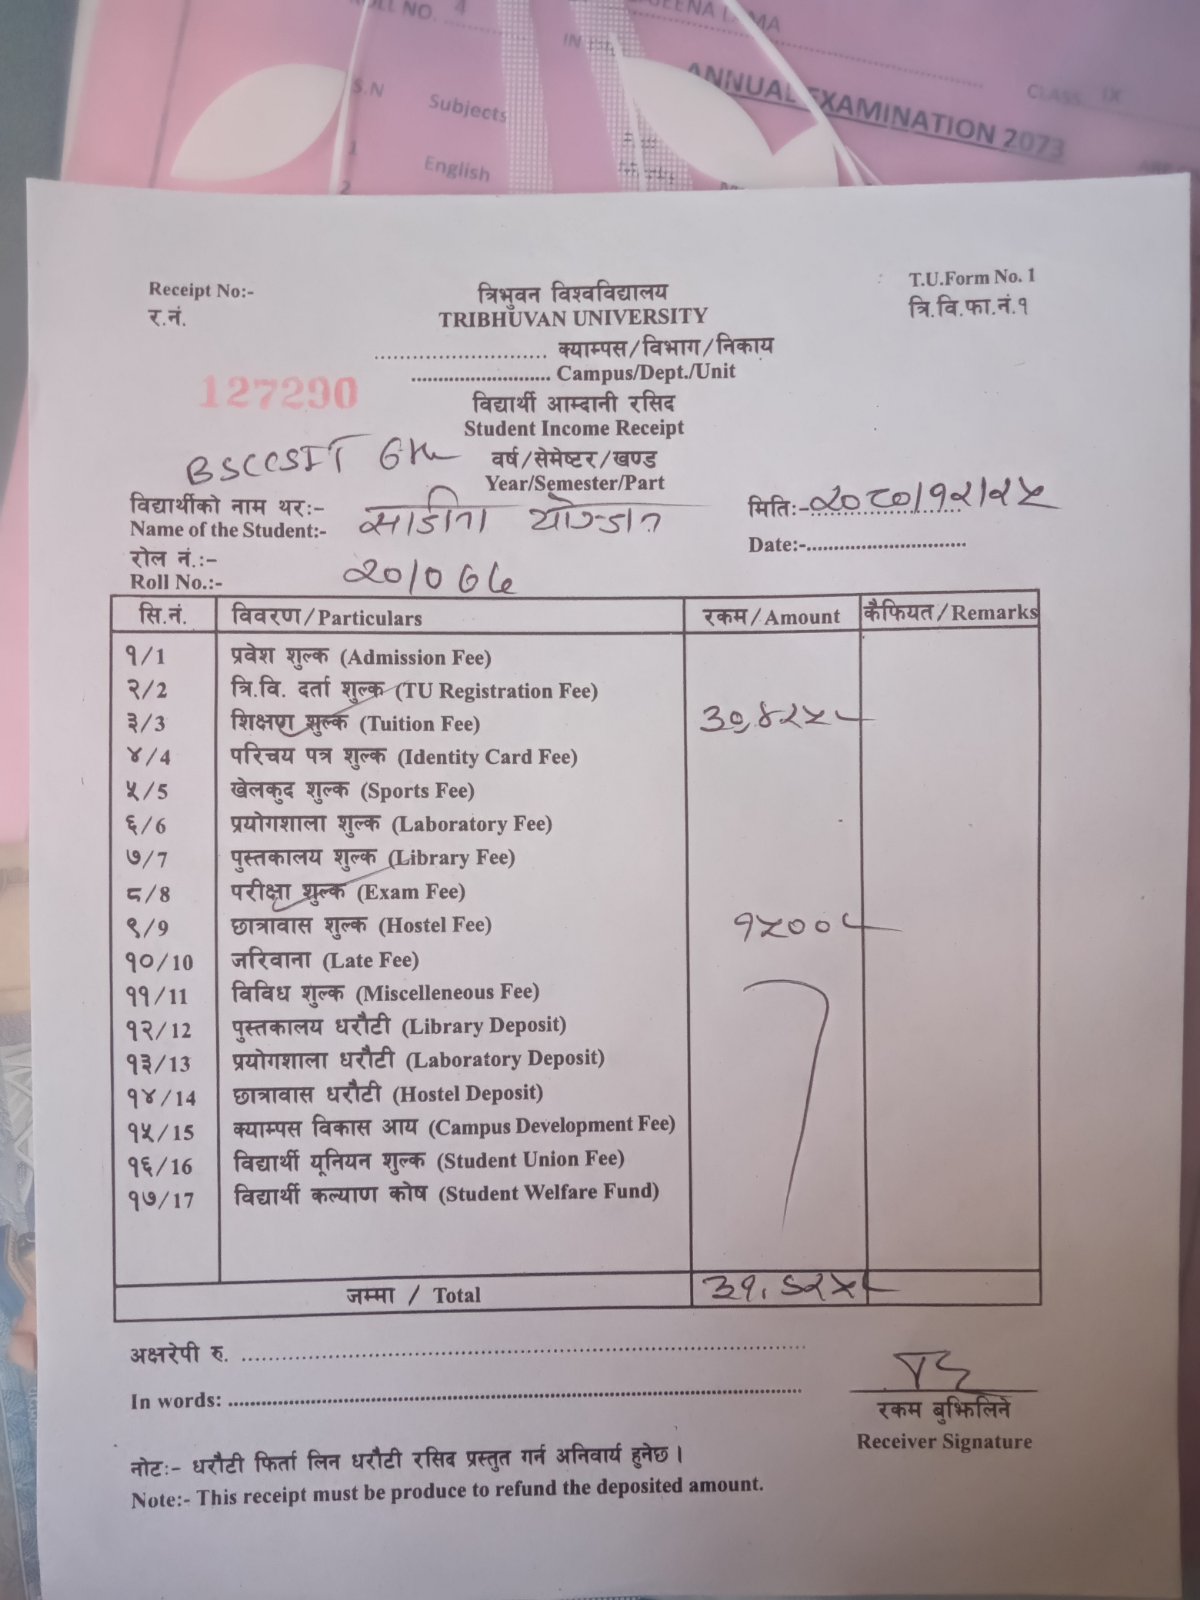 ROLL NO. 4
CLASS IX
ANNUAL EXAMINATION 2073
S.N Subjects
1 English
2
Receipt No:-
र.नं.
127290
त्रिभुवन विश्वविद्यालय
TRIBHUVAN UNIVERSITY
T.U.Form No. 1
त्रि.वि.फा.नं.१
........................... क्याम्पस/विभाग/निकाय
........................... Campus/Dept./Unit
विद्यार्थी आम्दानी रसिद
Student Income Receipt
BSCCSIT 6th वर्ष/सेमेष्टर/खण्ड
Year/Semester/Part
विद्यार्थीको नाम थर:-
Name of the Student:-
मिति:-२०८०/१२/२५
Date:-.............................
रोल नं.:-
Roll No.:-
सि.नं. विवरण/Particulars रकम/Amount कैफियत/Remarks
१/1 प्रवेश शुल्क (Admission Fee)
२/2 त्रि.वि. दर्ता शुल्क (TU Registration Fee)
३/3 शिक्षण शुल्क (Tuition Fee) ३०,४२५
४/4 परिचय पत्र शुल्क (Identity Card Fee)
५/5 खेलकुद शुल्क (Sports Fee)
६/6 प्रयोगशाला शुल्क (Laboratory Fee)
७/7 पुस्तकालय शुल्क (Library Fee)
८/8 परीक्षा शुल्क (Exam Fee)
९/9 छात्रावास शुल्क (Hostel Fee) १५००
१०/10 जरिवाना (Late Fee)
११/11 विविध शुल्क (Miscelleneous Fee)
१२/12 पुस्तकालय धरौटी (Library Deposit)
१३/13 प्रयोगशाला धरौटी (Laboratory Deposit)
१४/14 छात्रावास धरौटी (Hostel Deposit)
१५/15 क्याम्पस विकास आय (Campus Development Fee)
१६/16 विद्यार्थी यूनियन शुल्क (Student Union Fee)
१७/17 विद्यार्थी कल्याण कोष (Student Welfare Fund)
जम्मा / Total ३१,९२५
अक्षरेपी रु. ................................................
In words: ................................................
रकम बुझिलिने
Receiver Signature
नोट:- धरौटी फिर्ता लिन धरौटी रसिद प्रस्तुत गर्न अनिवार्य हुनेछ ।
Note:- This receipt must be produce to refund the deposited amount.